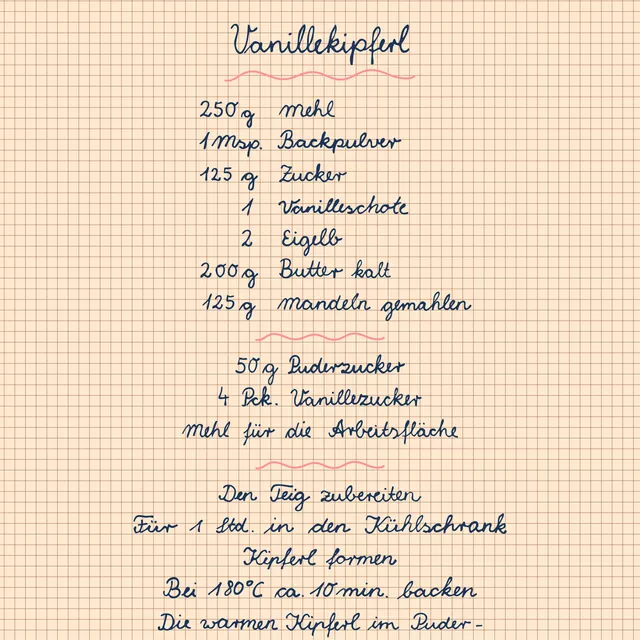 Vanillekipferl
250 g Mehl
1 Msp. Backpulver
125 g Zucker
1 Vanilleschote
2 Eigelb
200 g Butter kalt
125 g Mandeln gemahlen
50 g Puderzucker
4 Pck. Vanillezucker
Mehl für die Arbeitsfläche
Den Teig zubereiten
Für 1 Std. in den Kühlschrank
Kipferl formen
Bei 180°C ca. 10 min. backen
Die warmen Kipferl im Puder-